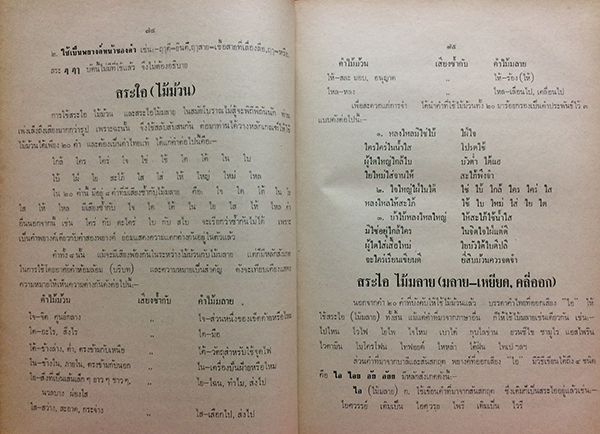 ๗๔
๒. ใช้เป็นพยางค์หน้าของคำ เช่น:-
สระ ฦ ฦๅ บัดนี้ไม่มีที่ใช้แล้ว จึงไม่ต้องอธิบาย
สระใอ (ไม้ม้วน)
การใช้สระใอ ไม้ม้วน และสระไอไม้มลาย ในสมัยโบราณไม่สู้จะพิถีพิถันนัก ท่าน
เพ่งเล็งถึงเสียงมากกว่ารูป เพราะฉะนั้น จึงใช้สลับสับสนกัน ต่อมาท่านได้วางหลักเกณฑ์ให้ใช้
ไม้ม้วนได้เพียง ๒๐ คำ และต้องเป็นคำไทยแท้ ได้แก่คำต่อไปนี้คือ:-
ใกล้ ใคร ใคร่ ใจ ใช่ ใช้ ใด ใต้ ใน ใบ
ใบ้ ใฝ่ ใย สะใภ้ ใส ใส่ ให้ ใหญ่ ใหม่ ใหล
ใน ๒๐ คำนี้ มีอยู่ ๘ คำที่มีเสียงซ้ำกับไม้มลาย คือ: ใจ ใด ใต้ ใน ใย
ใส ให้ ใหล
คำทั้ง ๘ นั้น แม้จะมีเสียงพ้องกันในระหว่างไม้ม้วนกับไม้มลาย แต่ก็มีหลักสังเกต
ในการใช้โดยอาศัยคำห้อมล้อม (บริบท) และความหมายเป็นสำคัญ
ความหมายให้เห็นความต่างกันดังต่อไปนี้:-
คำไม้ม้วน เสียงซ้ำกับ คำไม้มลาย
ใจ-จิต ศูนย์กลาง ,, ไจ-ส่วนหนึ่งของเข็ดด้ายหรือไหม
ใด-อะไร, สิ่งไร ,, ได-มือ
ใต้-ข้างล่าง, ต่ำ, ตรงข้ามกับเหนือ ,, ไต้-วัตถุสำหรับใช้จุดไฟ
ใน-ข้างใน, ภายใน, ตรงข้ามกับนอก ,, ไน-เครื่องปั่นฝ้ายหรือไหม
ใย-สิ่งที่เป็นเส้นเล็ก ๆ ยาว ๆ ขาว ๆ, ,, ไย-ไฉน, ทำไม, ส่งไป
นวลบาง ผ่องใส
ใส-สว่าง, สะอาด, กระจ่าง ,, ไส-เสือกไป, ส่งไป
๗๕
คำไม้ม้วน เสียงซ้ำกับ คำไม้มลาย
ให้-สละ มอบ, อนุญาต ,, ไห้-ร้อง (ไห้)
ใหล-หลง ,, ไหล-เลื่อนไป, เคลื่อนไป
เพื่อสะดวกแก่การจำ ได้นำคำที่ใช้ไม้ม้วนทั้ง ๒๐ มาร้อยกรองเป็นคำประพันธ์ไว้ ๓
แบบดังต่อไปนี้:-
๑. หลงใหลมิใช่ใบ้ ใฝ่ใจ
ใครใคร่ในน้ำใส โปรดใช้
ผู้ใดใหญ่ใกล้ใบ บัวต่ำ ใต้แฮ
ใยใหม่ใส่จานให้ สะใภ้พึ่งจำ
๒. ใจใหญ่ใฝ่ในใต้ ใช่ ใบ้ ใกล้ ใคร ใคร่ ใส
หลงใหลให้สะใภ้ ใช้ ใบ ใหม่ ใส่ ใย ใด
๓. บ้าใบ้หลงใหลใหญ่ ให้สะใภ้ใช้น้ำใส
มิใช่อยู่ใกล้ใคร ในจิตใจใฝ่แต่ดี
ผู้ใดใส่เสื้อใหม่ ใยบัวใต้ใบดิปลี
จะใคร่เรียนเขียนดี ยี่สิบม้วนควรจดจำ
สระไอ ไม้มลาย (มลาย-เหยียด, คลี่ออก)
นอกจากคำ ๒๐ คำที่บังคับให้ใช้ไม้ม้วนแล้ว บรรดาคำไทยที่ออกเสียง "ไอ" ให้
ใช้สระไอ (ไม้มลาย) ทั้งสิ้น แม้แต่คำที่มาจากภาษาอื่น ก็ให้ใช้ไม้มลายเช่นเดียวกัน เช่น:-
ไปไหน ไวไฟ ไยไพ ไจไหม เบาไต๋ กุบไลข่าน
ไวตามิน ไมโครโฟน ไทฟอยด์ ไหหลำ ไต้ฝุ่น ไหนเปา ฯลฯ
ส่วนคำที่มาจากบาลีและสันสกฤต พยางค์ที่ออกเสียง "ไอ" มีวิธีเขียนได้ถึง ๔ ชนิด
คือ ไอ ไอย อัย อัยย มีหลักสังเกตดังนี้:-
ไอ (ไม้มลาย) ก. ใช้เขียนคำที่มาจากสันสกฤต ซึ่งเดิมก็เป็นสระไออยู่แล้วเช่น:-
ไอศวรรย์ เดิมเป็น ไอศฺวรฺย ไพรี เดิมเป็น ไวรี